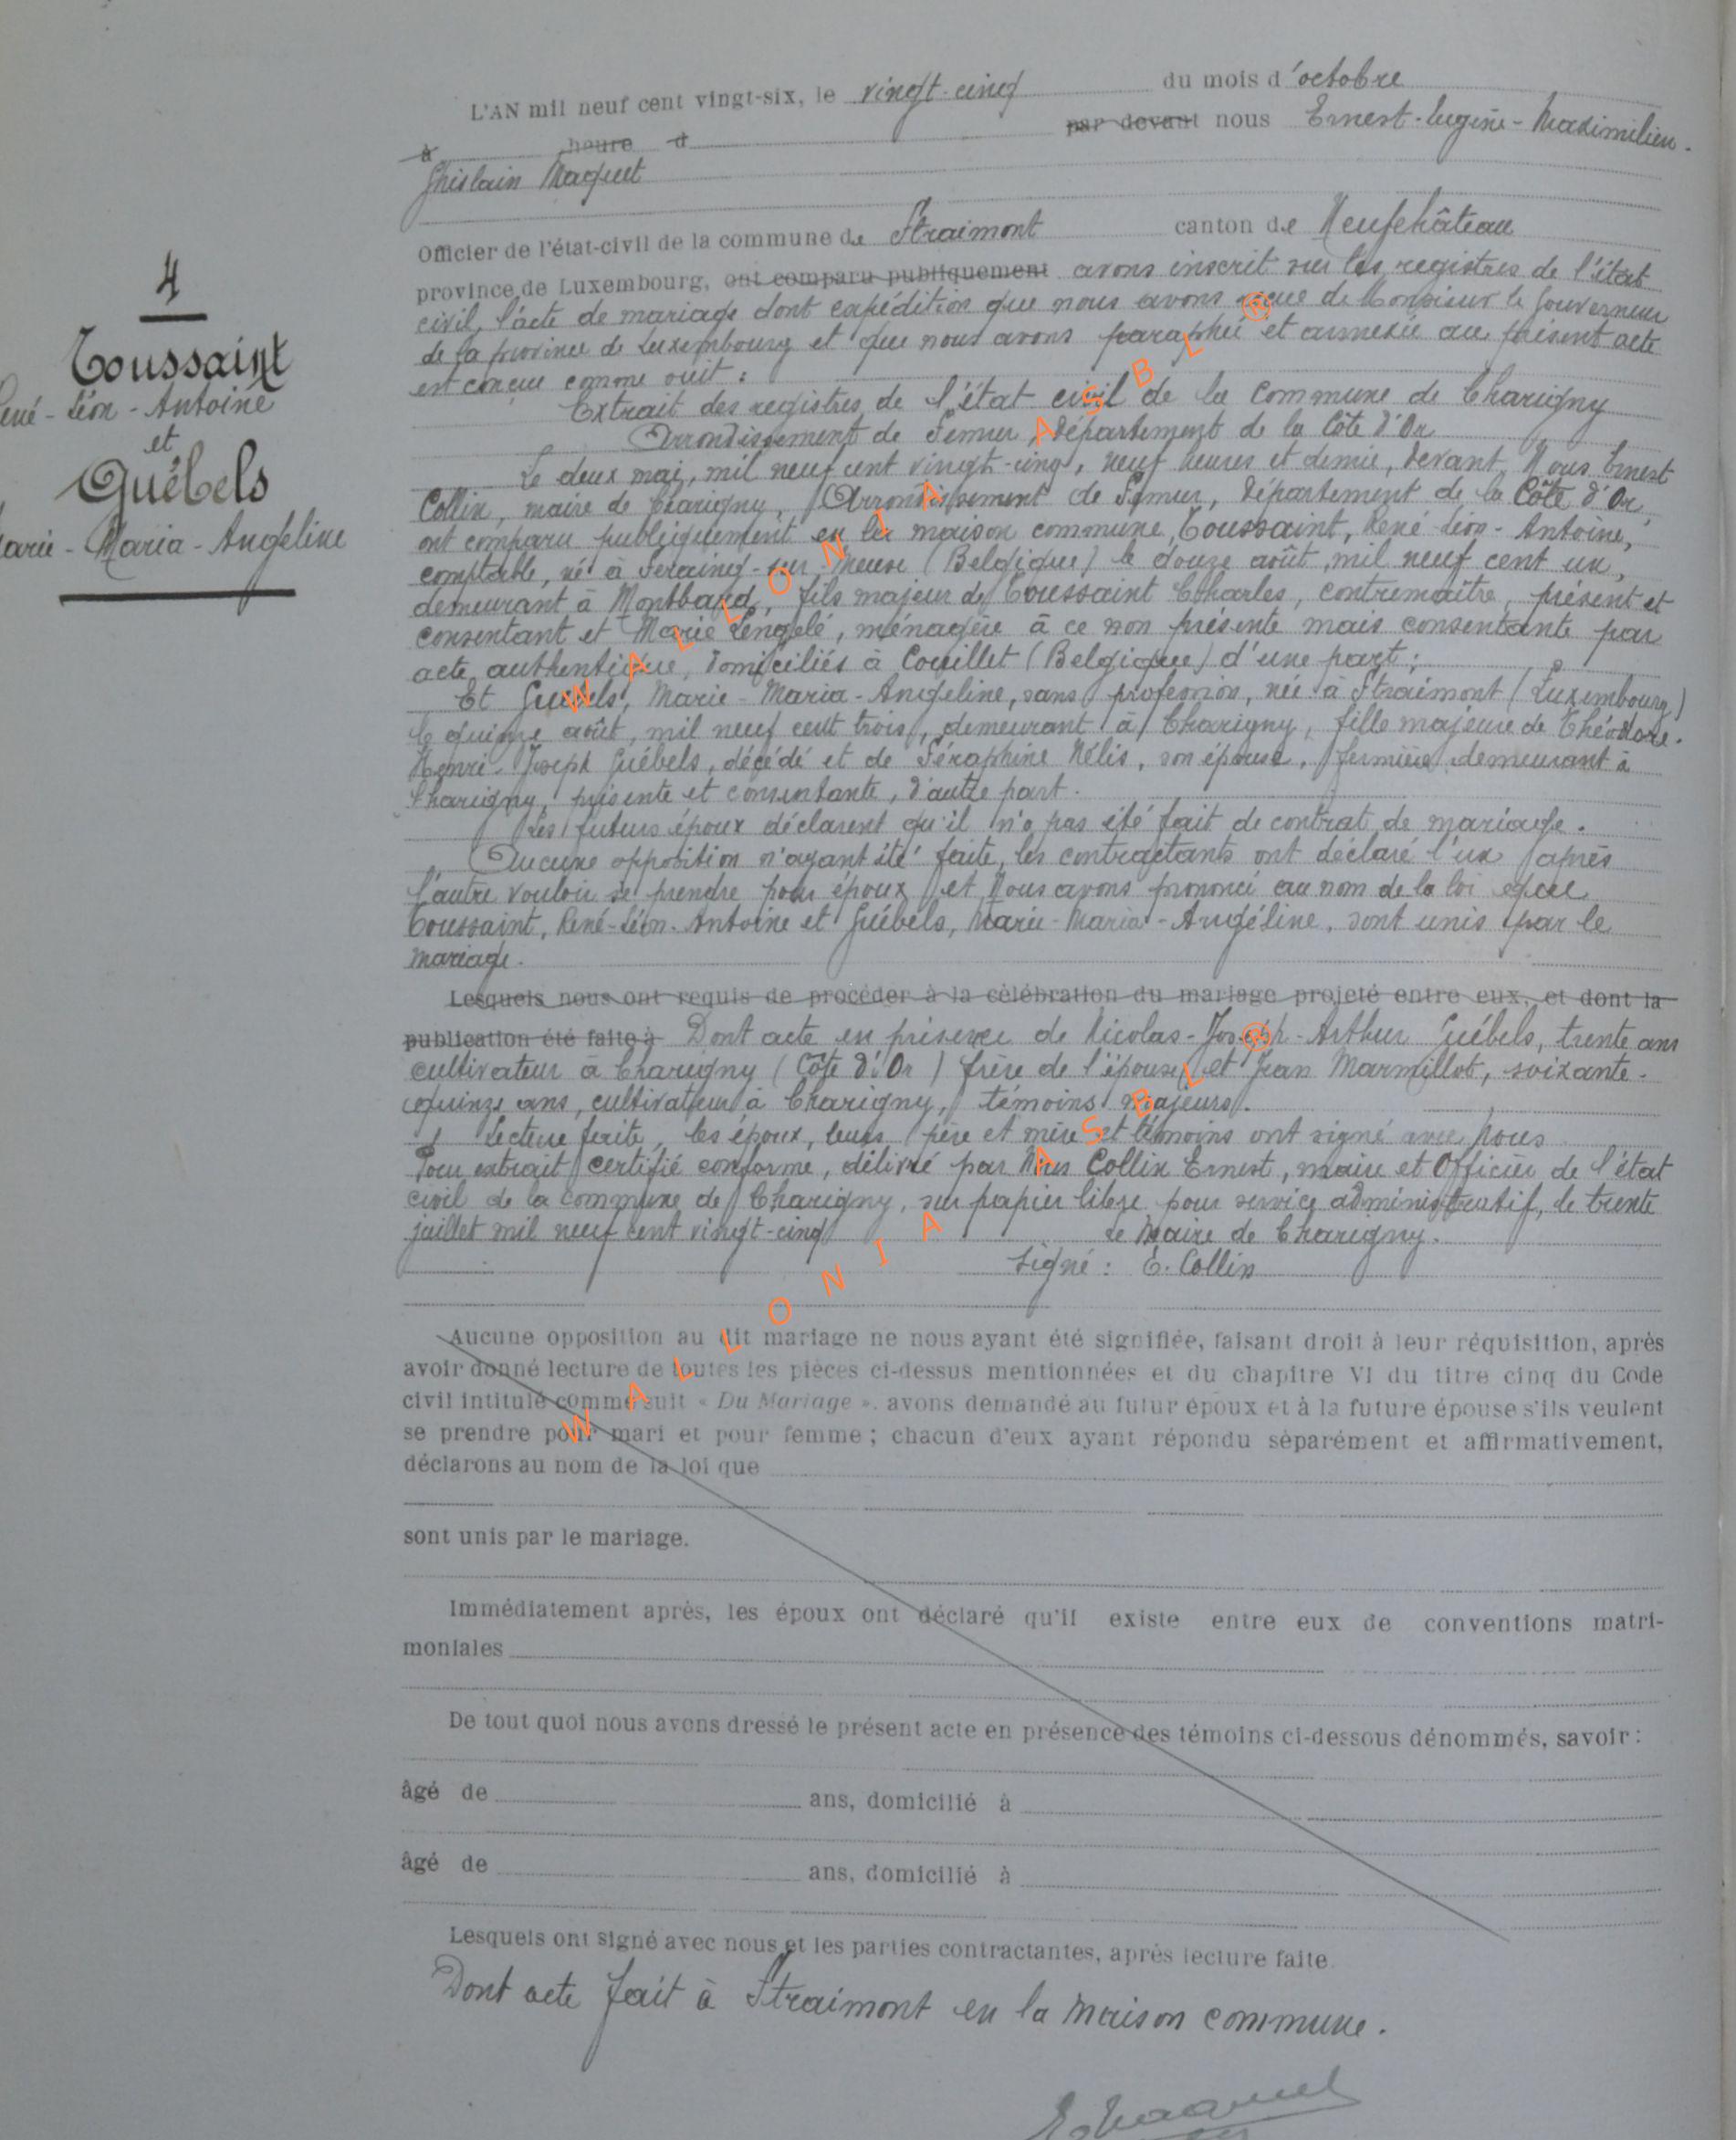 4
Toussaint
René-Léon-Antoine
et
Guébels
Marie-Maria-Angéline
L'AN mil neuf cent vingt-six, le vingt-cinq du mois d'octobre
à heure d par devant nous Ernest-Eugène-Maximilien-
Ghislain Maquet
Officier de l'état-civil de la commune de Straimont canton de Neufchâteau
province de Luxembourg, ont comparu publiquement avons inscrit sur les registres de l'état
civil, l'acte de mariage dont expédition que nous avons reçue de Monsieur le Gouverneur
de la province de Luxembourg et que nous avons paraphée et annexée au présent acte
est conçue comme suit :
Extrait des registres de l'état civil de la Commune de Charigny
Arrondissement de Semur, département de la Côte d'Or
Le deux mai, mil neuf cent vingt-cinq, neuf heures et demie, devant Nous Ernest
Collin, maire de Charigny, Arrondissement de Semur, Département de la Côte d'Or,
ont comparu publiquement en la maison commune, Toussaint, René Léon-Antoine,
comptable, né à Seraing-sur-Meuse (Belgique) le douze août, mil neuf cent un,
demeurant à Montbard, fils majeur de Toussaint Charles, contremaître, présent et
consentant et Marie Lengelé, ménagère à ce non présente mais consentante par
acte authentique, domiciliés à Couillet (Belgique) d'une part ;
Et Guébels, Marie-Maria-Angéline, sans profession, née à Straimont (Luxembourg)
le quinze août, mil neuf cent trois, demeurant à Charigny, fille majeure de Théodore-
Henri-Joseph Guébels, décédé et de Séraphine Nélis, son épouse, fermière demeurant à
Charigny, présente et consentante, d'autre part.
Les futurs époux déclarent qu'il n'a pas été fait de contrat de mariage.
Aucune opposition n'ayant été faite, les contractants ont déclaré l'un après
l'autre vouloir se prendre pour époux et Nous avons prononcé au nom de la loi que
Toussaint, René-Léon-Antoine et Guébels, Marie-Maria-Angéline, sont unis par le
mariage.
Lesquels nous ont requis de procéder à la célébration du mariage projeté entre eux, et dont la
publication été faite à Dont acte en présence de Nicolas-Joseph-Arthur Guébels, trente ans
cultivateur à Charigny (Côte d'Or) frère de l'épouse, et Jean Marmillot, soixante-
quinze ans, cultivateur à Charigny, témoins majeurs.
Lecture faite, les époux, leurs père et mère et témoins ont signé avec Nous
Pour extrait certifié conforme, délivré par Nous Collin Ernest, maire et Officier de l'état
civil de la commune de Charigny, sur papier libre pour service administratif, le trente
juillet mil neuf cent vingt-cinq le Maire de Charigny.
Signé : E. Collin
Aucune opposition au dit mariage ne nous ayant été signifiée, faisant droit à leur réquisition, après
avoir donné lecture de toutes les pièces ci-dessus mentionnées et du chapitre VI du titre cinq du Code
civil intitulé comme suit « Du Mariage ». avons demandé au futur époux et à la future épouse s'ils veulent
se prendre pour mari et pour femme ; chacun d'eux ayant répondu séparément et affirmativement,
déclarons au nom de la loi que
sont unis par le mariage.
Immédiatement après, les époux ont déclaré qu'il existe entre eux de conventions matri-
moniales
De tout quoi nous avons dressé le présent acte en présence des témoins ci-dessous dénommés, savoir :
âgé de ans, domicilié à
âgé de ans, domicilié à
Lesquels ont signé avec nous et les parties contractantes, après lecture faite
Dont acte fait à Straimont en la maison commune.
E. Maquet
WALLONIA ASBL ®
WALLONIA ASBL ®